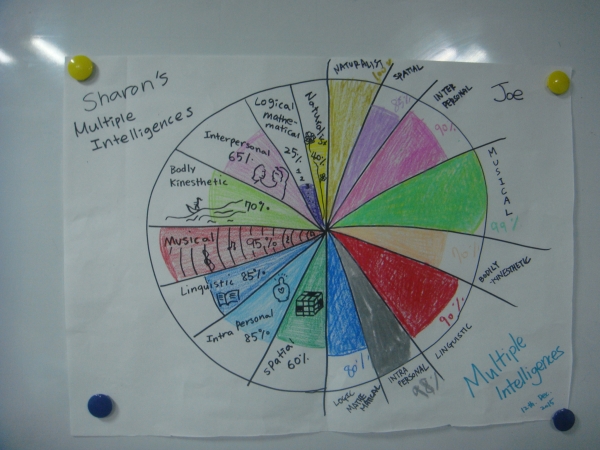 Sharon's
Multiple
Intelligences
Joe
Naturalist
40%
Logical
mathe-
matical
25%
Interpersonal
65%
Bodly
Kinesthetic
70%
Musical
95%
Linguistic 85%
Intra personal
85%
Spatial
60%
NATURALIST
SPATIAL
85%
INTER
PERSONAL
90%
MUSICAL
99%
BODILY
-KINESTHETIC
70%
LINGUISTIC
90%
INTRA
PERSONAL
98%
LOGIC
MATHE
MATICAL
80%
Multiple
Intelligences